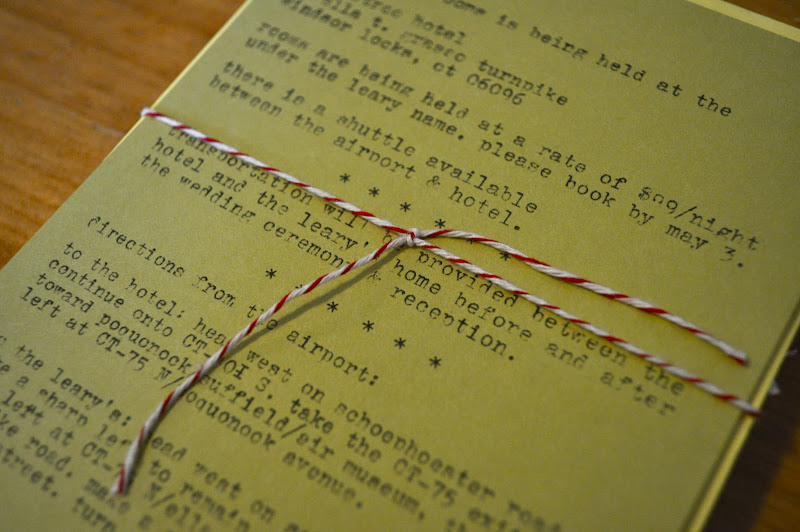 is being held at the
hotel
t. grasso turnpike
windsor locks, ct 06096
rooms are being held at a rate of $89/night
under the leary name. please book by may 3.
there is a shuttle available
between the airport & hotel.
* * * * * *
transportation will be provided between the
hotel and the leary's home before and after
the wedding ceremony & reception.
* * * * * *
directions from the airport:
to the hotel: head west on schoenhoester road
continue onto CT 3. take the CT-75 exit
toward poquonock suffield/air museum,
left at CT-75 N/poquonock avenue.
the leary's: head west on
a sharp left to remain
left at CT- N/ella
road. make a
street. turn